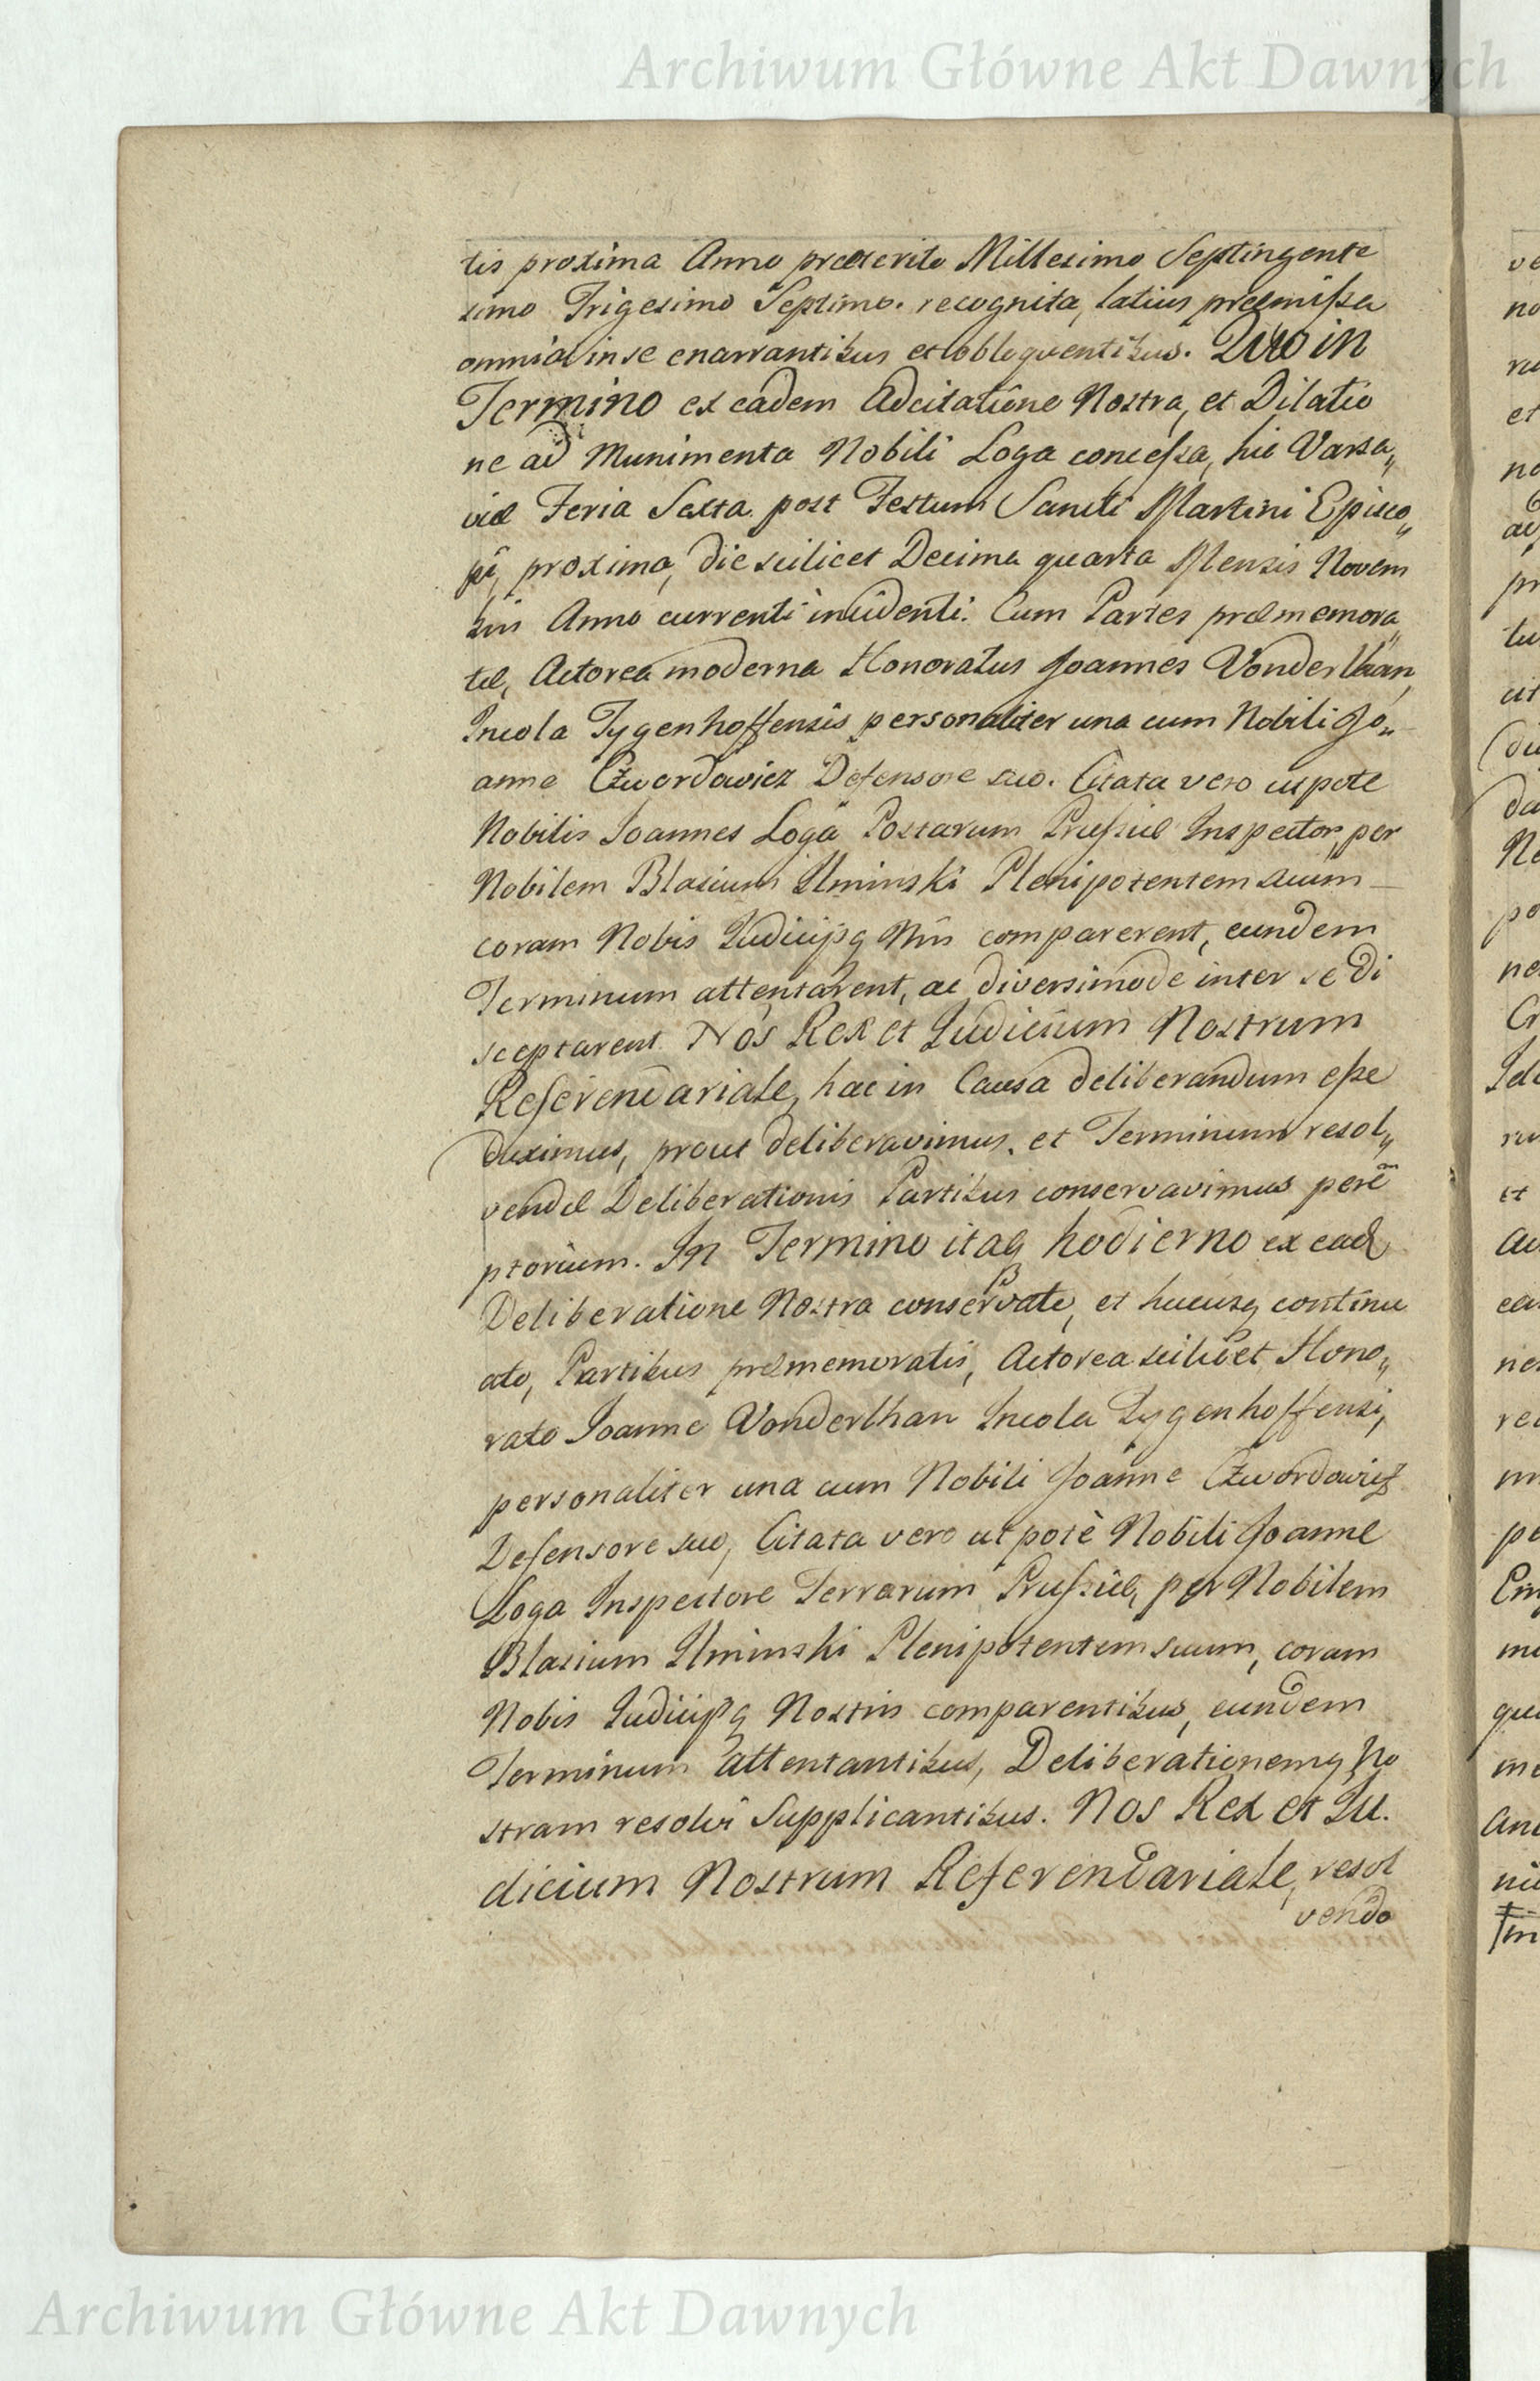 Archiwum Główne Akt Dawnych
tis proxima Anno præterito Millesimo Septingente
simo Trigesimo Septimo. recognita, latius præmissa
omnia in se enarrantibus et obloquentibus. Quo in
Termino ex eadem Adcitatione Nostra, et Dilatio
ne ad Munimenta Nobili Loga concessa, hic Varsa„
viæ Feria Sexta post Festum Sancti Martini Episco„
pi, proxima, die scilicet Decima quarta Mensis Novem
bris Anno currenti incidenti. Cum Partes præmemora„
tæ, Actorea moderna Honoratus Joannes Vonderlhan,
Incola Tygenhoffensis personaliter una cum Nobili Jo„
anne Czwordowicz Defensore suo. Citata vero utpote
Nobilis Joannes Loga Postarum Prussiæ Inspector, per
Nobilem Blasium Ilminski Plenipotentem suum
coram Nobis Judicijsq Nris comparerent, eundem
Terminum attentarent, ac diversimode inter se di
sceptarent. Nos Rex et Judicium Nostrum
Referendariale, hac in Causa deliberandum esse
duximus, prout deliberavimus. et Terminum resol„
vendæ Deliberationis Partibus conservavimus perem
ptorium. In Termino itaq hodierno ex ead
Deliberatione Nostra conservato, et hucusq continu
ato, Partibus præmemoratis, Actorea scilicet Hono„
rato Joanne Vonderlhan Incola Tygenhoffensi,
personaliter una cum Nobili Joanne Czwordowicz
Defensore suo, Citata vero utpote Nobili Joanne
Loga Inspectore Terrarum Prussiæ, per Nobilem
Blasium Ilminski Plenipotentem suum, coram
Nobis Judicijsq Nostris comparentibus, eundem
Terminum attentantibus, Deliberationemq No
stram resolvi Supplicantibus. Nos Rex et Ju.
dicium Nostrum Referendariale, resol
vendo
Archiwum Główne Akt Dawnych